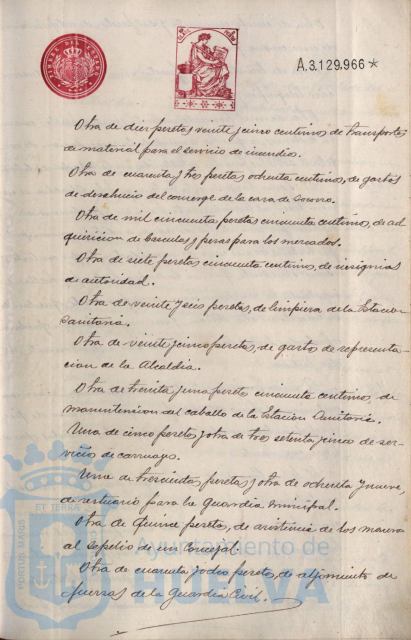 A.3.129.966*
Otra de diez pesetas veinte y cinco centimos de transportes
de material para el servicio de incendio.
Otra de cuarenta y tres pesetas ochenta centimos, de gastos
de desahucio del conserge de la casa de Socorro.
Otra de mil cincuenta pesetas cincuenta centimos, de ad
quisicion de basculas y pesas para los mercados.
Otra de siete pesetas cincuenta centimos, de insignias
de autoridad.
Otra de veinte y seis pesetas, de limpieza de la Estacion
Sanitaria.
Otra de veinte y cinco pesetas, de gastos de representa-
cion de la Alcaldia.
Otra de treinta y una pesetas cincuenta centimos, de
manutension del caballo de la Estacion Sanitaria.
Una de cinco pesetas y otra de tres setenta y cinco de ser-
vicios de carruage.
Una de trescientas pesetas y otra de ochenta y nueve,
de vestuario para la Guardia Municipal.
Otra de Quince pesetas, de asistencia de los
al sepelio de un Concejal.
Otra de cuarenta y dos pesetas, de alojamiento de
fuerzas de la Guardia Civil.
PORTUS MARIS
ET TERRÆ
Ayuntamiento de
HUELVA